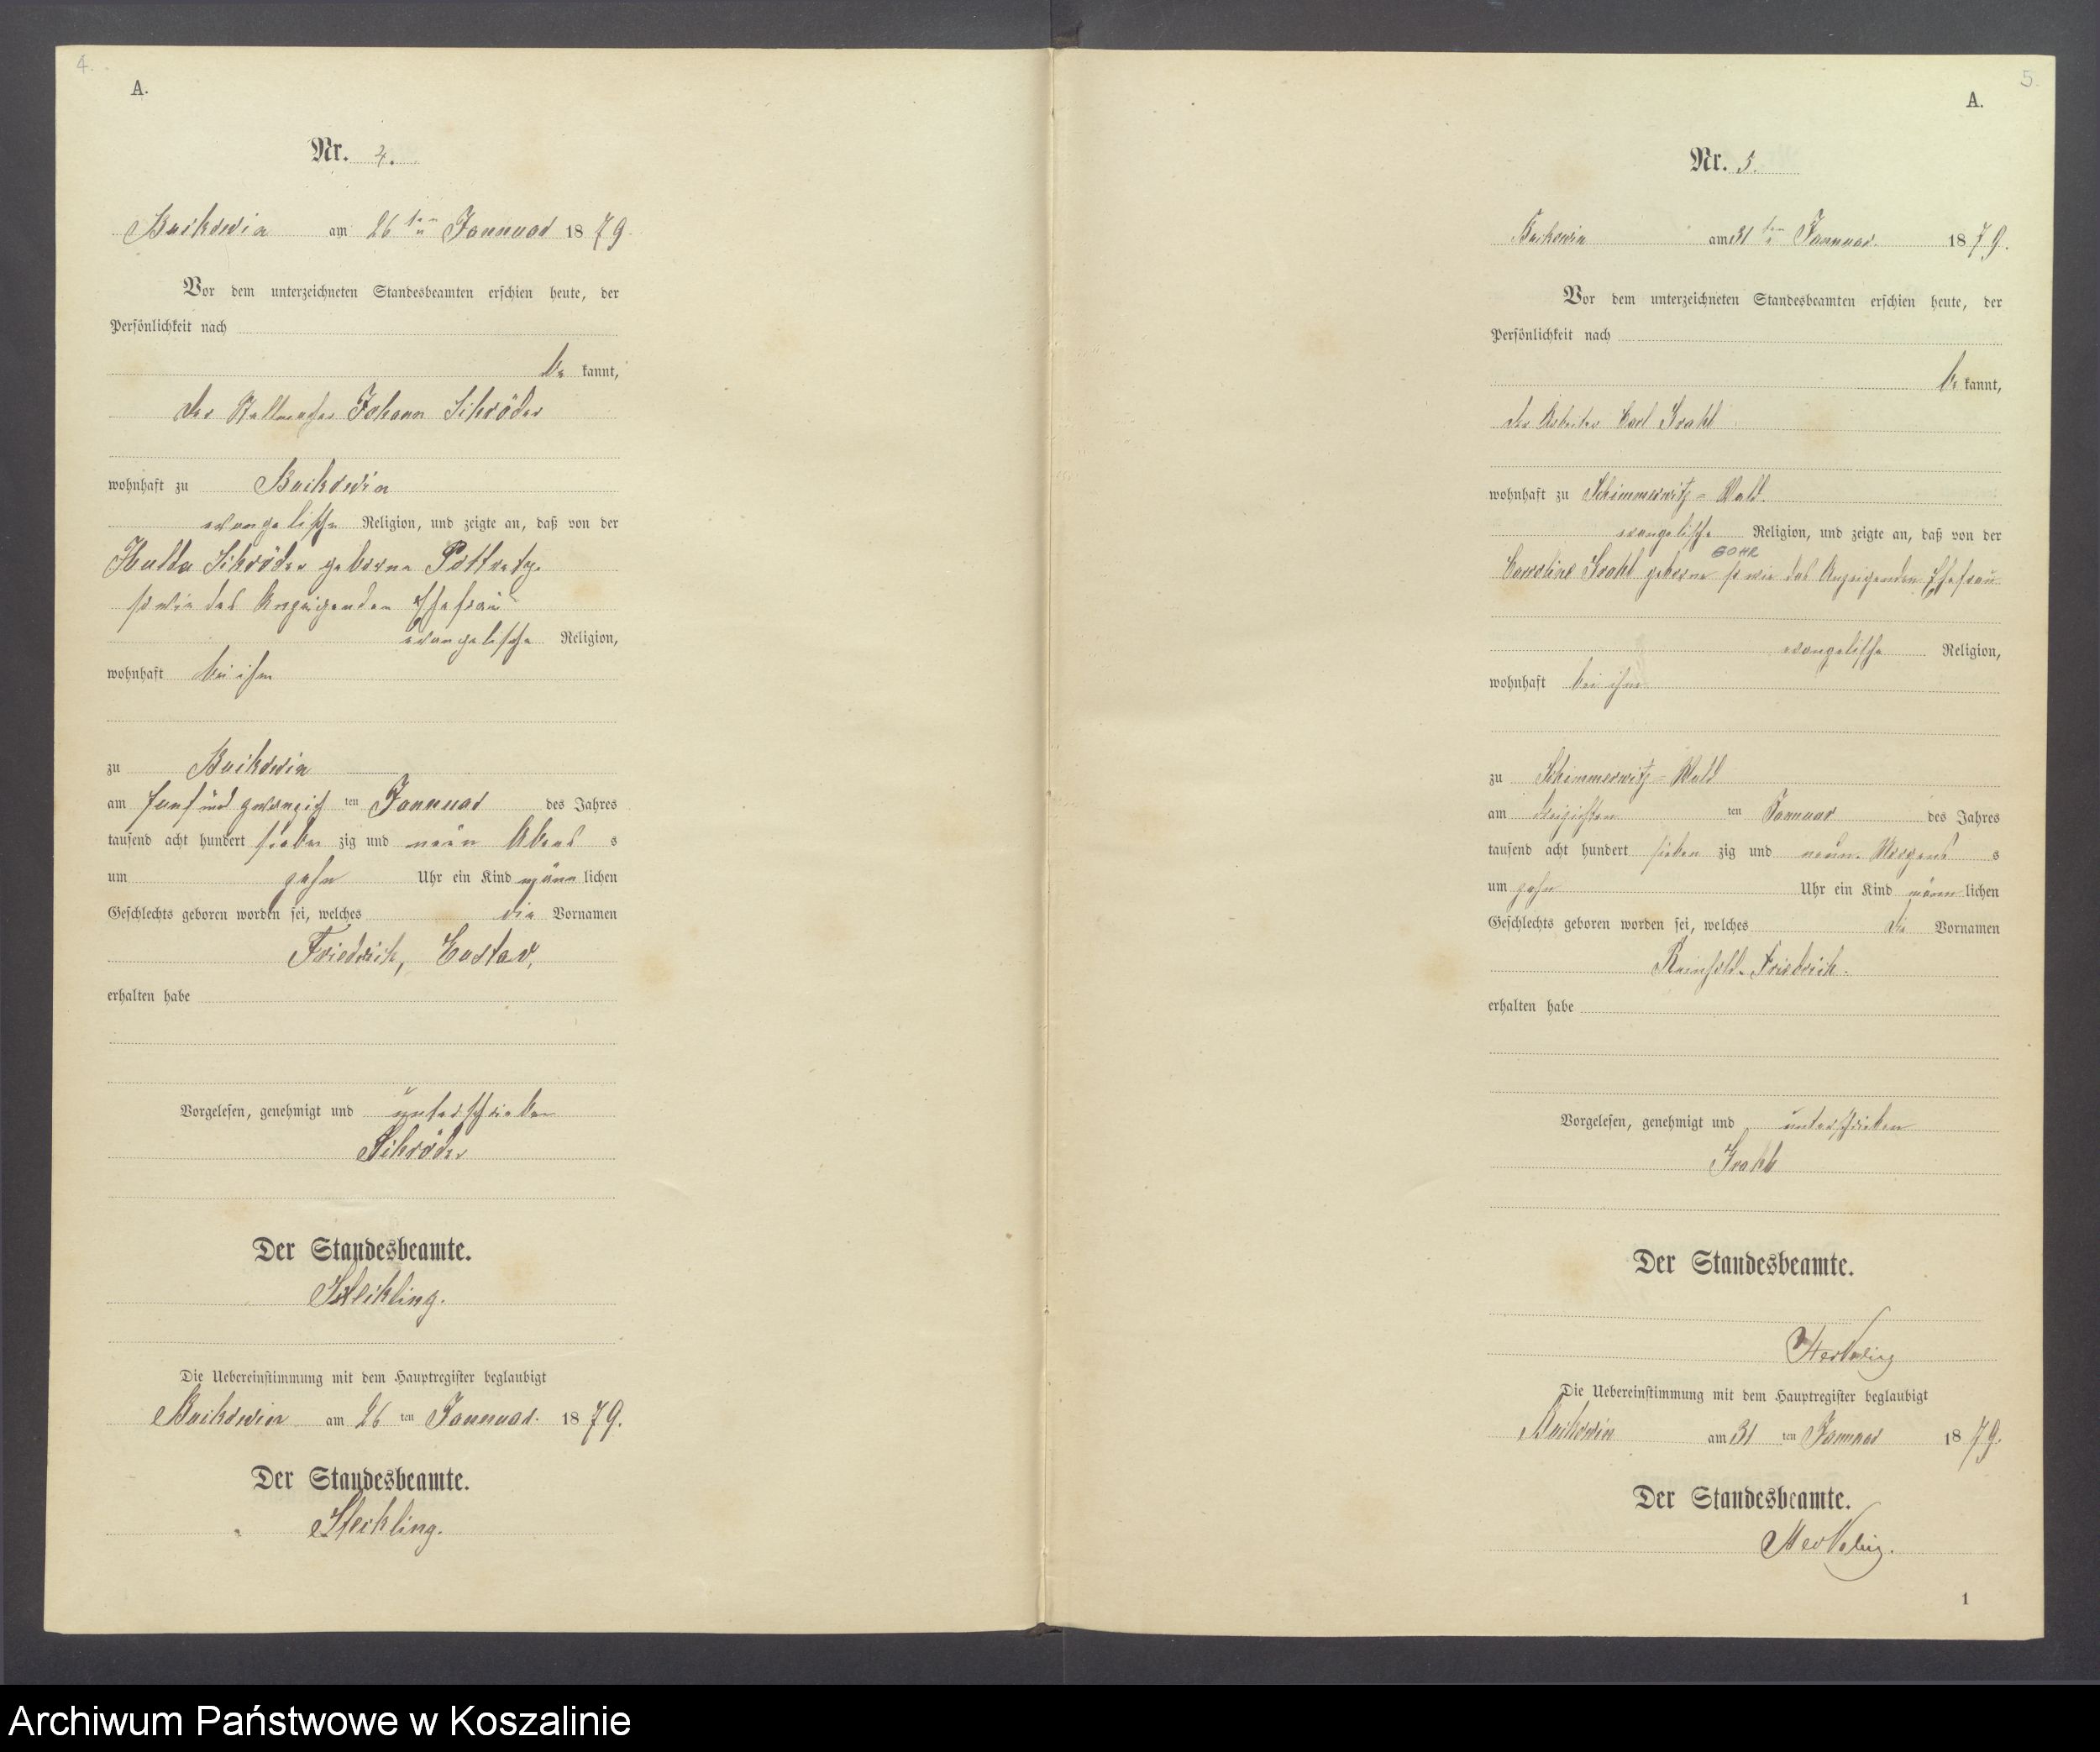 4.
A.
Nr. 4.
Bukowin am 26 ten Januar 1879
Vor dem unterzeichneten Standesbeamten erschien heute, der
Persönlichkeit nach
be kannt,
der Johann Schröder
wohnhaft zu Bukowin
evangelische Religion, und zeigte an, daß von der
Schröder geborne
so wie des Anzeigenden Ehefrau
evangelische Religion,
wohnhaft bei ihm
zu Bukowin
am fünf und zwanzig ten Januar des Jahres
tausend acht hundert sieben zig und neun Abend s
um zehn Uhr ein Kind männ lichen
Geschlechts geboren worden sei, welches die Vornamen
Friedrich, Gustav,
erhalten habe
Vorgelesen, genehmigt und unterschrieben
Schröder
Der Standesbeamte.
Steckling.
Die Uebereinstimmung mit dem Hauptregister beglaubigt
Bukowin am 26 ten Januar 1879.
Der Standesbeamte.
Steckling.
5
A.
Nr. 5.
Bukowin am 31 ten Januar 1879.
Vor dem unterzeichneten Standesbeamten erschien heute, der
Persönlichkeit nach
be kannt,
der Arbeiter Carl Krahl
wohnhaft zu Schimmerwitz - Wald.
evangelische Religion, und zeigte an, daß von der
GOHR
Caroline Krahl geborne so wie des Anzeigenden Ehefrau
evangelische Religion,
wohnhaft bei ihm
zu Schimmerwitz - Wald
am dreizigsten ten Januar des Jahres
tausend acht hundert sieben zig und neun Morgens s
um zehn Uhr ein Kind männ lichen
Geschlechts geboren worden sei, welches die Vornamen
Reinhold Friedrich.
erhalten habe
Vorgelesen, genehmigt und unterschrieben
Krahl
Der Standesbeamte.
Die Uebereinstimmung mit dem Hauptregister beglaubigt
Bukowin am 31 ten Januar 1879.
Der Standesbeamte.
1
Archiwum Państwowe w Koszalinie